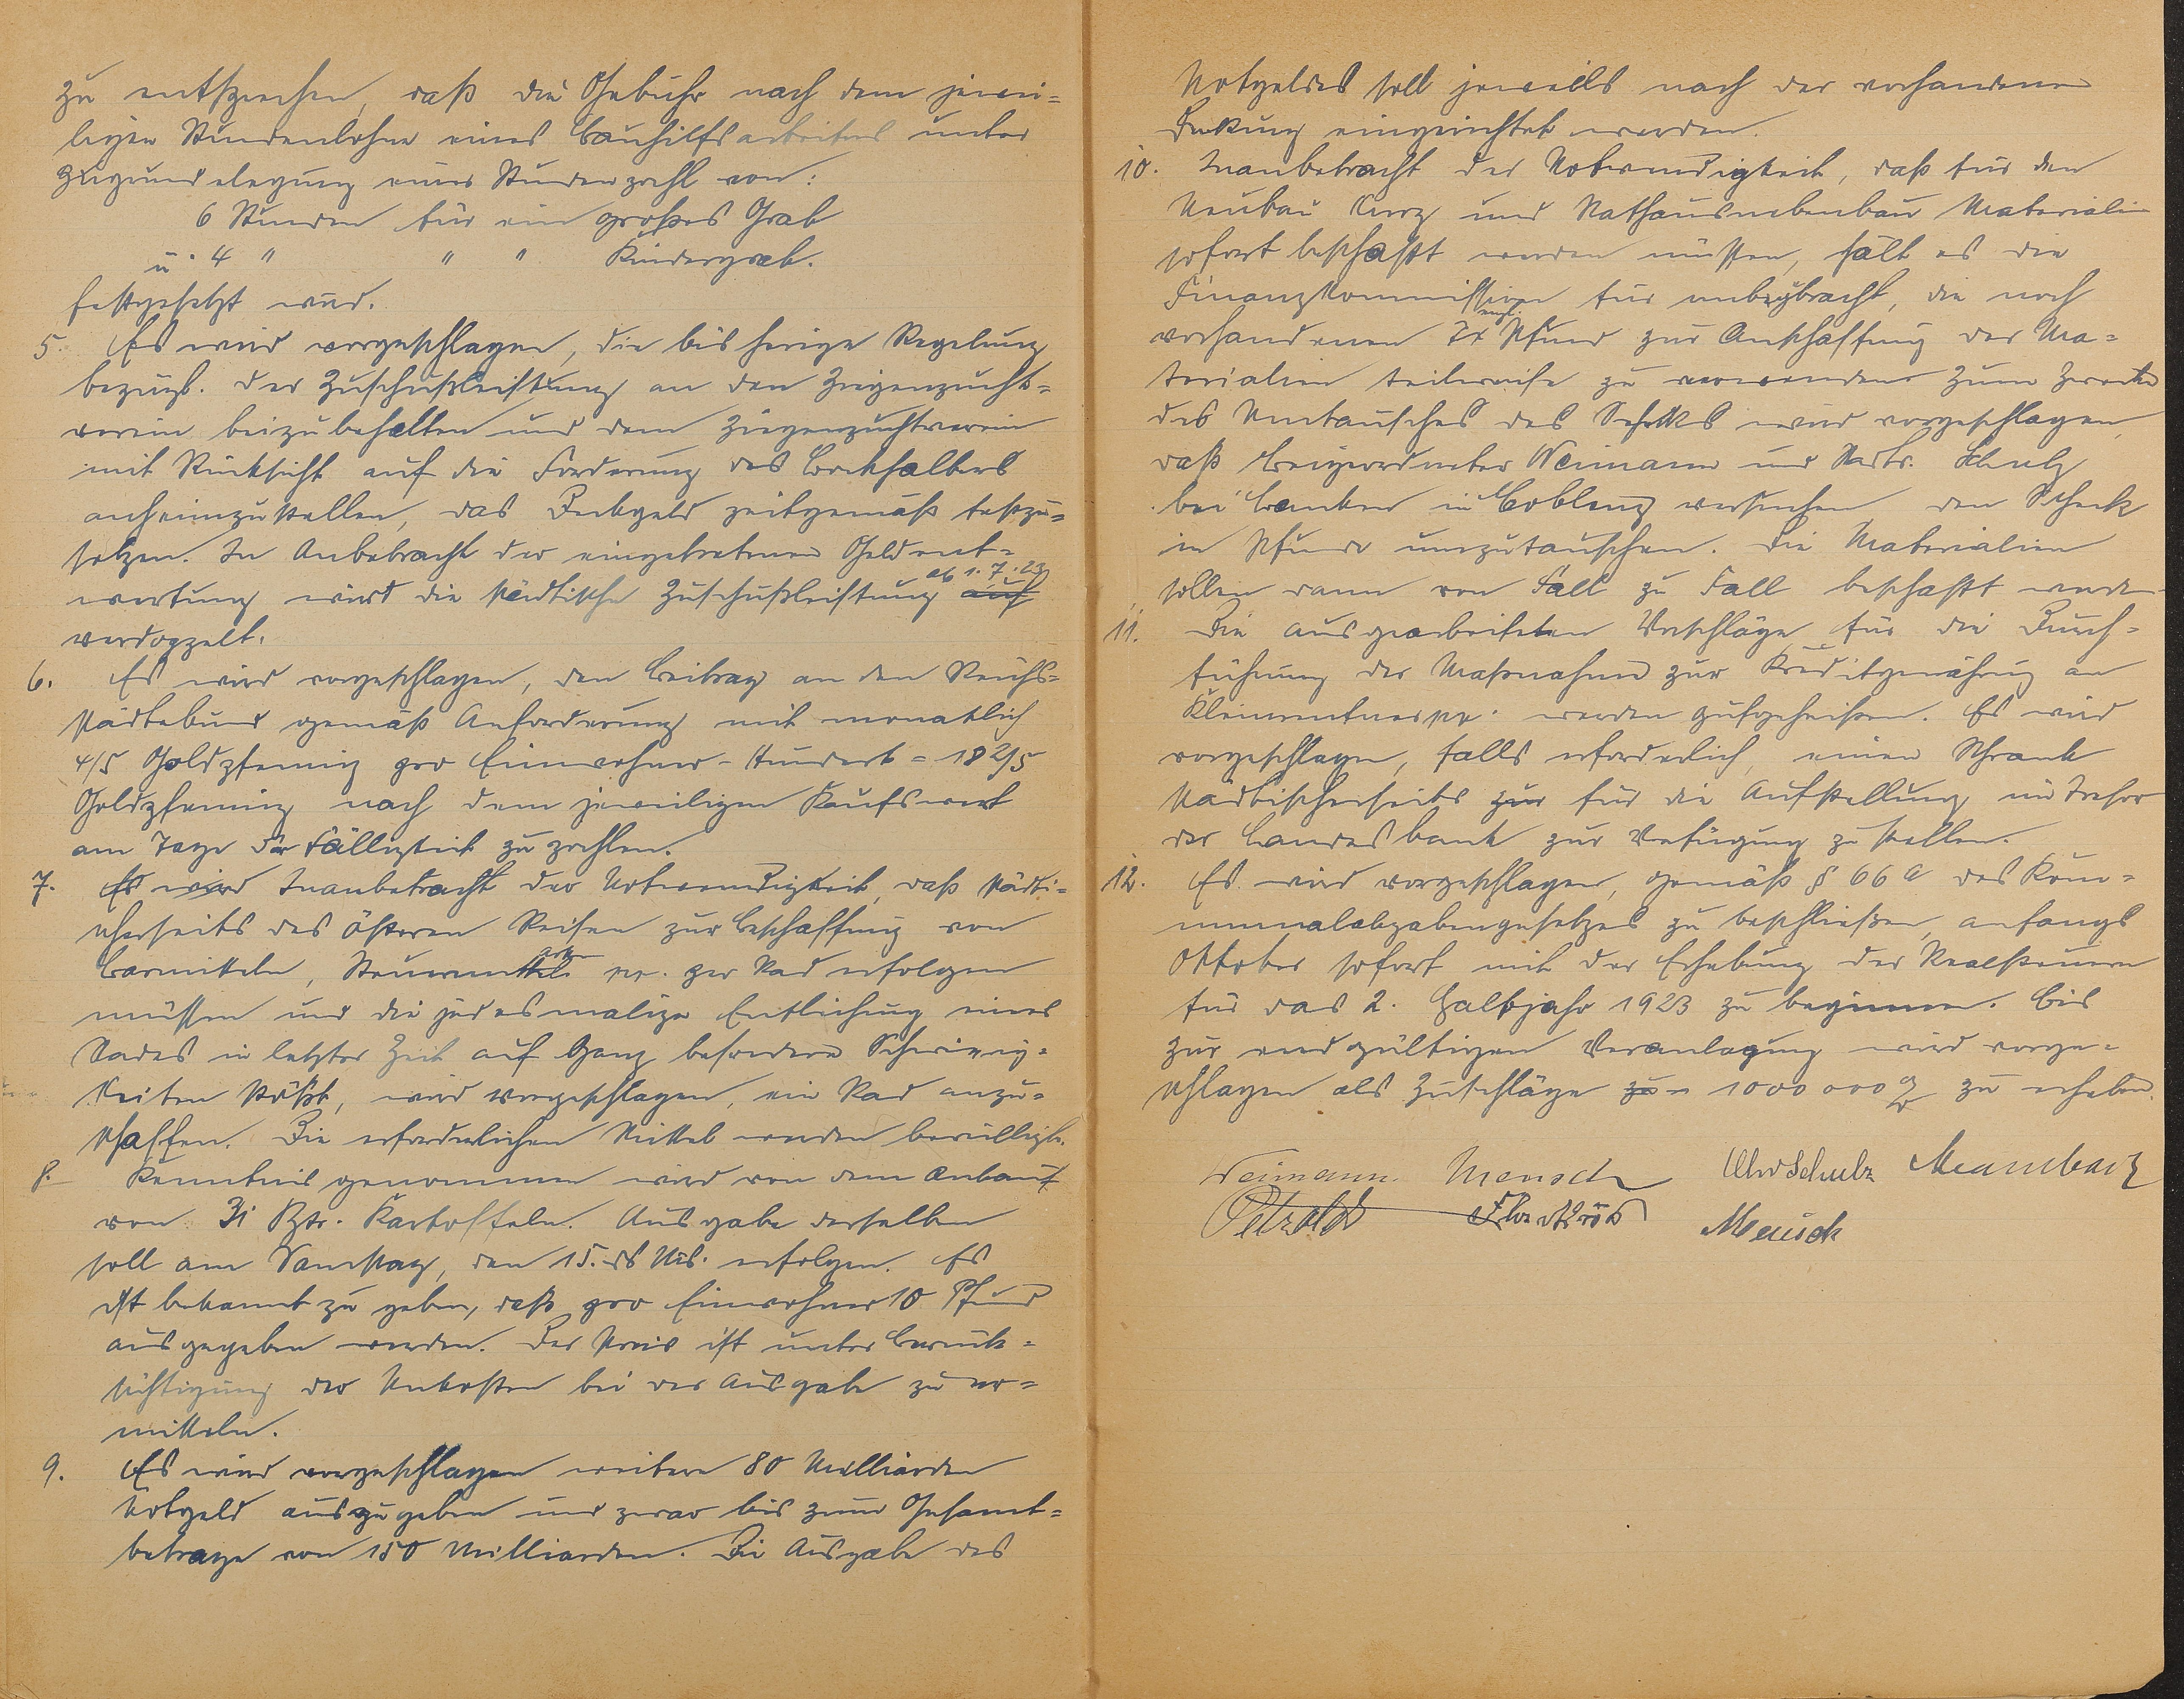 zu entsprechen, daß die Gebühr nach dem jewei-
ligen Stundenlohn eines Bauhilfsarbeiters unter
Zugrundelegung einer Stundenzahl von:
6 Stunden für ein großes Grab
u. 4 " " " Kindergrab.
festgesetzt wird.
5. Es wird vorgeschlagen, die bisherige Regelung
bezügl. der Zuschußleistung an den Ziegenzucht-
verein beizubehalten und dem Ziegenzuchtverein
mit Rücksicht auf die Forderung des Bockhalters
anheimzustellen, das Deckgeld zeitgemäß festzu-
setzen. In Anbetracht der eingetretenen Geldent-
wertung wird die städtische Zuschußleistung ab 1.7.23 auf
verdoppelt.
6. Es wird vorgeschlagen, den Beitrag an den Reichs-
städtebund gemäß Anforderung mit monatlich
4/5 Goldpfennig pro Einwohner-Hundert = 18 2/5
Goldpfennig nach dem jeweiligen Kaufswert
am Tage der Fälligkeit zu zahlen.
7. Es wird Inanbetracht der Notwendigkeit, daß städti-
scherseits des öfteren Reisen zur Beschaffung von
Barmitteln, pp. per Rad erfolgen
müssen und die jedesmalige Entleihung eines
Rades in letzter Zeit auf ganz besondere Schwierig-
keiten stößt, wird vorgeschlagen, ein Rad anzu-
schaffen. Die erforderlichen Mittel werden bewilligt.
8. Kenntnis genommen wird von dem Ankauf
von 31 Ztr. Kartoffeln. Ausgabe derselben
soll am Samstag, den 15. ds Mts. erfolgen. Es
ist bekannt zu geben, daß pro Einwohner 10 Pfund
ausgegeben werden. Der Preis ist unter Berück-
sichtigung der Unkosten bei der Ausgabe zu er-
mitteln.
9. Es wird vorgeschlagen weitere 80 Milliarden
Notgeld auszugeben und zwar bis zum Gesamt-
betrage von 150 Milliarden. Die Ausgabe des
Notgeldes soll jeweils nach der vorhandenen
Deckung eingerichtet werden.
10. Inanbetracht der Notwendigkeit, daß für den
Neubau Kurz und Rathausnebenbau Materialien
sofort beschafft werden müssen, hält es die
Finanzkommission für unbegbracht, die noch
vorhandenen engl. Pfund zur Anschaffung der Ma-
terialien teilweise zu verwenden. Zum Zwecke
des Umtausches des Schecks wird vorgeschlagen,
daß Beigeordneter Weimann und Schulz
bei Banken in Coblenz versuchen den Scheck
in Pfund umzutauschen. Die Materialien
sollen dann von Fall zu Fall beschafft werden.
11. Die ausgearbeiteten Vorschläge für die Durch-
führung der Maßnahmen zur Kreditgewährung an
Kleinrentner pp. werden gutgeheißen. Es wird
vorgeschlagen, falls erforderlich, einen Schrank
städtischerseits zur für die Aufstellung im Tresor
der Landesbank zur Verfügung zu stellen.
12. Es wird vorgeschlagen, gemäß § 66 a des Kom-
munalabgabengesetzes zu beschließen, anfangs
Oktober sofort mit der Erhebung der Realsteuern
für das 2. Halbjahr 1923 zu beginnen. Bis
zur endgültigen Veranlagung wird vorge-
schlagen als Zuschläge zu 1000 000 % zu erheben.
Weimann. Mensch Schulz
Petzold Mensch